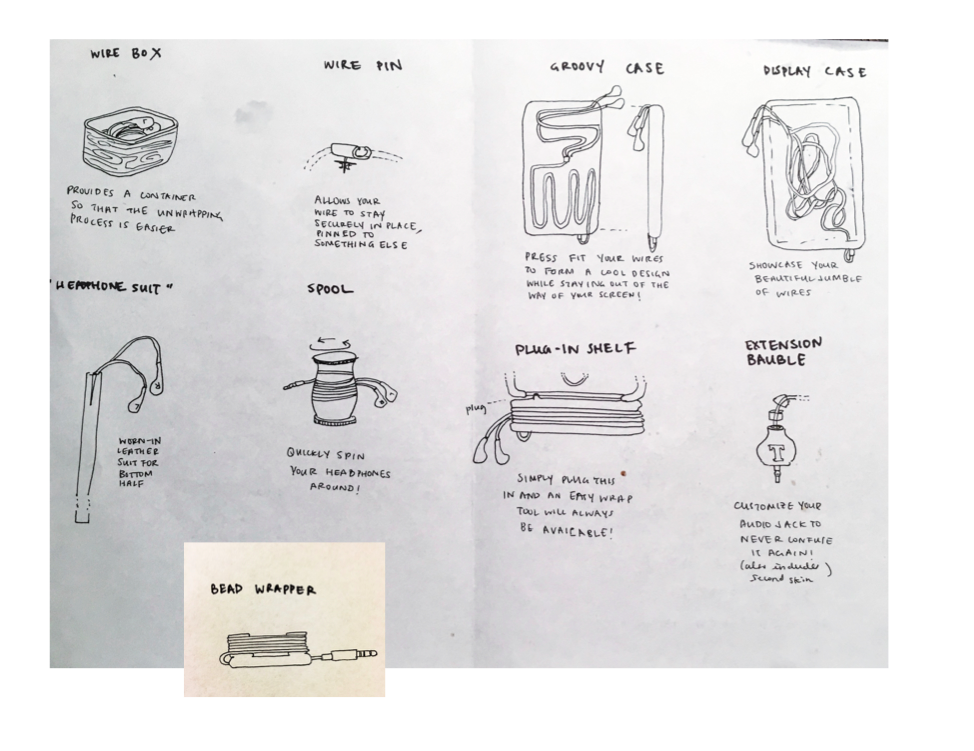 WIRE BOX
PROVIDES A CONTAINER
SO THAT THE UNWRAPPING
PROCESS IS EASIER
WIRE PIN
ALLOWS YOUR
WIRE TO STAY
SECURELY IN PLACE,
PINNED TO
SOMETHING ELSE
GROOVY CASE
PRESS FIT YOUR WIRES
TO FORM A COOL DESIGN
WHILE STAYING OUT OF THE
WAY OF YOUR SCREEN!
DISPLAY CASE
SHOWCASE YOUR
BEAUTIFUL JUMBLE
OF WIRES
"HEADPHONE SUIT"
WORN-IN
LEATHER
SUIT FOR
BOTTOM
HALF
SPOOL
QUICKLY SPIN
YOUR HEADPHONES
AROUND!
PLUG-IN SHELF
plug
SIMPLY PLUG THIS
IN AND AN EASY WRAP
TOOL WILL ALWAYS
BE AVAILABLE!
EXTENSION
BAUBLE
T
CUSTOMIZE YOUR
AUDIO JACK TO
NEVER CONFUSE
IT AGAIN!
(also includes)
second skin
BEAD WRAPPER